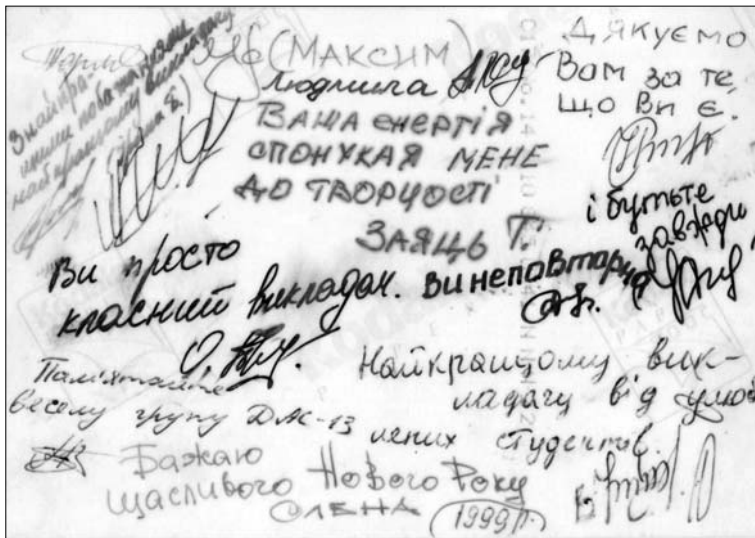 З найкра-
щими побажаннями
найкращому викладачу
ЯЄ (МАКСИМ)
Людмила
ВАША ЕНЕРГІЯ
СПОНУКАЯ МЕНЕ
ДО ТВОРЧОСТІ
ЗАЯЦЬ Т.
ДЯКУЄМО
Вам за те,
що Ви є.
і будьте
завжди
Ви просто
класний викладач.
Ви неповторна
Пам'ятайте
веселу групу ДАС-13
Найкращому вик-
ладачу від
студентів
Бажаю
щасливого Нового Року
ОЛЕНА
1999 р.